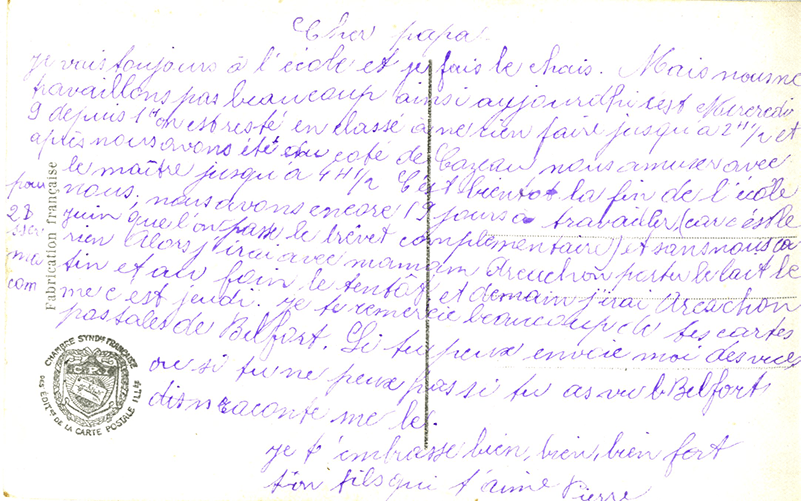 Cher papa
je vais toujours à l'école et je fais le chais. Mais nous ne
travaillons pas beaucoup ainsi aujourdhi c'est Mercredi
9 depuis 1h on est resté en classe a ne rien faire jusqu'a 2h 1/2 et
après nous avons été du coté de Cazeau nous amuser avec
le maître jusqu'a 4h 1/2 C'est bientot la fin de l'école
nous, nous avons encore 19 jours a travailler (car c'est le
juin que l'on passe le brevet complémentaire) et sans nous
rien Alors j'irai avec maman Arcachon porter le lait le
tin et au foin le tentot et demain j'irai Arcachon
me c'est jeudi. Je te remercie beaucoup de tes cartes
postales de Belfort. Si tu peux envoie moi des vues
ou si tu ne peux pas si tu as vu le Belfort
dis raconte me le.
je t'embrasse bien, bien, bien fort
ton fils qui t'aime Pierre
pour
28
ma
com
Fabrication française
CHAMBRE SYNDle FRANÇAISE
DES ÉDITrs DE LA CARTE POSTALE ILLée